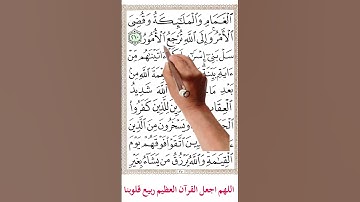 ٱلۡغَمَامِ وَٱلۡمَلَٰٓئِكَةُ وَقُضِيَ
ٱلۡأَمۡرُ وَإِلَى ٱللَّهِ تُرۡجَعُ ٱلۡأُمُورُ ٢١٠
سَلۡ بَنِيٓ إِسۡرَ ءَاتَيۡنَٰهُم مِّنۡ
ءَايَةِۭ بَيِّنَةٖ نِعۡمَةَ ٱللَّهِ مِنۢ
شَدِيدُ
ٱلۡعِقَابِ لِلَّذِينَ كَفَرُواْ
وَيَسۡخَرُونَ مِنَ ٱلَّذِينَ
ٱتَّقَوۡاْ فَوۡقَهُمۡ يَوۡمَ
ٱلۡقِيَٰمَةِۗ وَٱللَّهُ يَرۡزُقُ مَن يَشَآءُ بِغَيۡرِ
اللهم اجعل القرآن العظيم ربيع قلوبنا